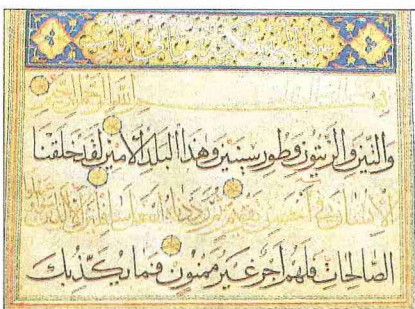 بسم الله الرحمن الرحيم
وَالتِّينِ وَالزَّيْتُونِ وَطُورِ سِينِينَ وَهَذَا الْبَلَدِ الْأَمِينِ لَقَدْ خَلَقْنَا
الإنسان في أحسن تقويم ثم رددناه أسفل سافلين إلا الذين
الصَّالِحَاتِ فَلَهُمْ أَجْرٌ غَيْرُ مَمْنُونٍ فَمَا يُكَذِّبُكَ